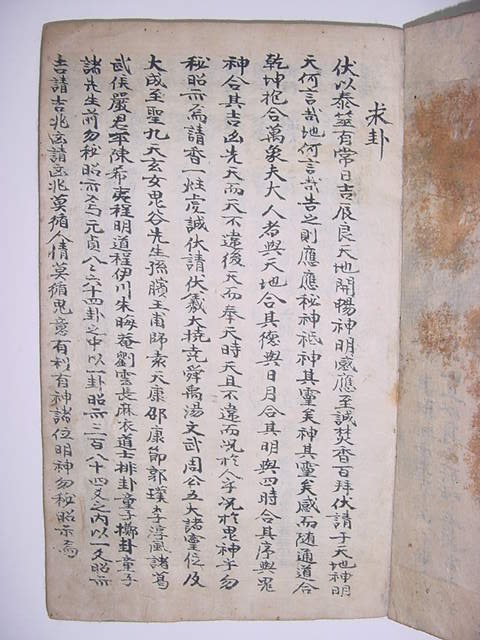 求卦
伏以泰筮有常日吉辰良天地開暢神明感應至誠焚香百拜伏請于天地神明
天何言哉地何言哉告之則應應秘神祗神其靈矣神其靈矣感而随通道合
乾坤抱合萬象夫大人者與天地合其德與日月合其明與四時合其序與鬼
神合其吉凶先天而天不違後天而奉天時天且不違而况於人乎况於鬼神乎勿
秘昭示焉請香一炷虔誠伏請伏羲大撓堯舜禹湯文武周公五大諸靈位及
大成至聖九天玄女鬼谷先生孫臏王甫師袁天康邵康節郭璞李淳風諸葛
武侯嚴君平陳希夷程明道程伊川朱晦菴劉雲長麻衣道士排卦童子擲卦童子
諸先生前勿秘昭示焉元貞八八六十四卦之中以一卦昭示三百八十四爻之内以一爻昭示
吉請吉兆凶請凶兆莫循人情莫循鬼意有利有神諸位明神勿秘昭示焉